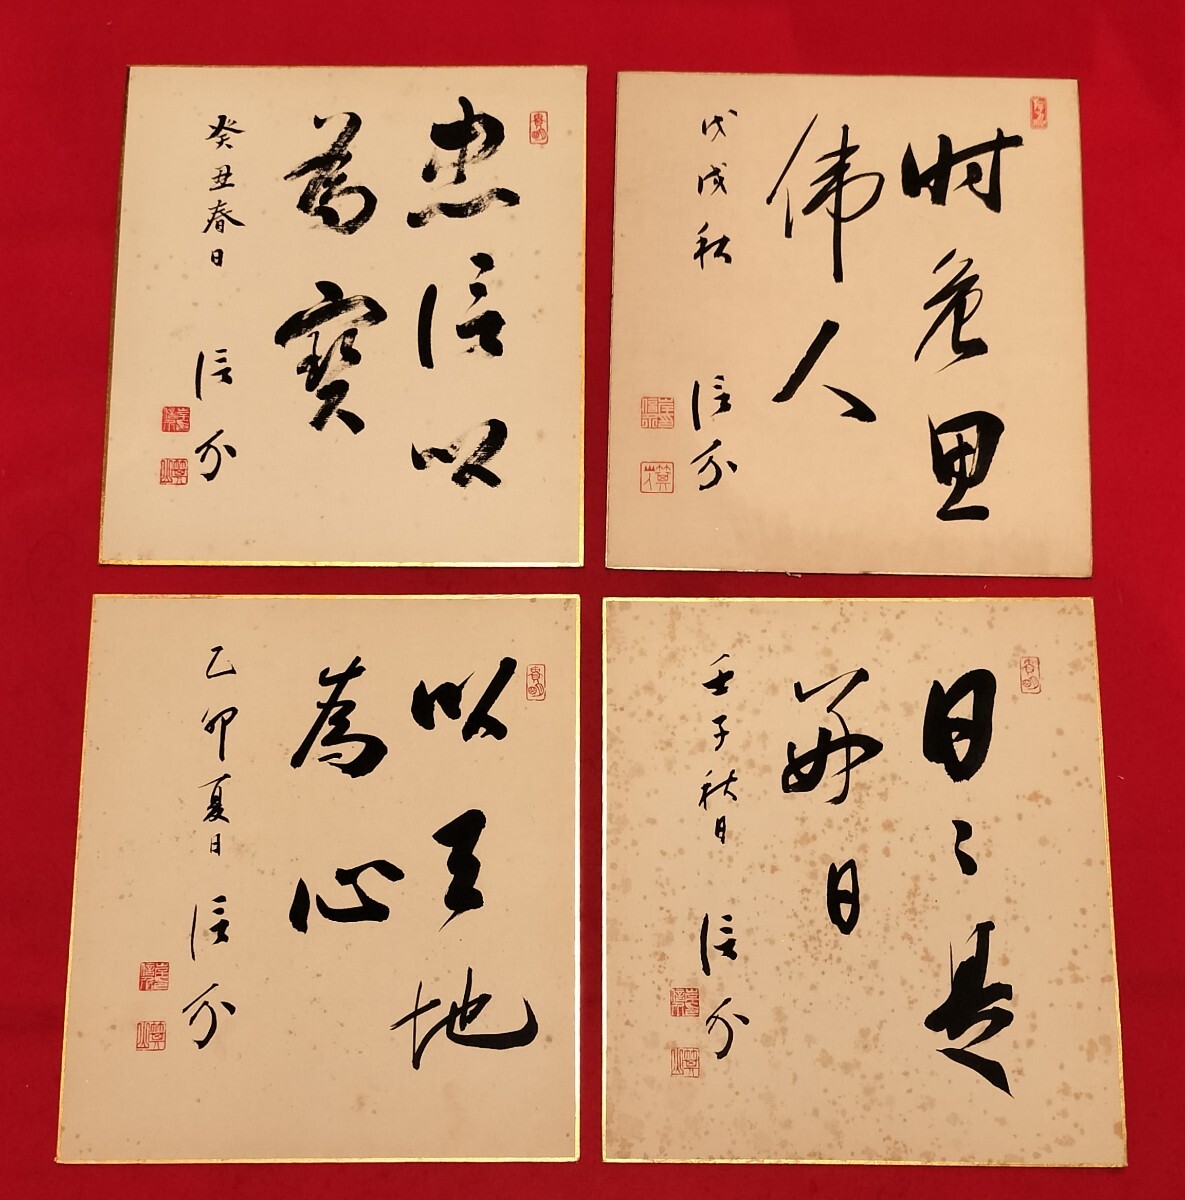 忠信以
為寶
癸丑春日 信介
時危思
偉人
戊戌秋 信介
以天地
為心
乙卯夏日 信介
日々是
好日
壬子秋日 信介